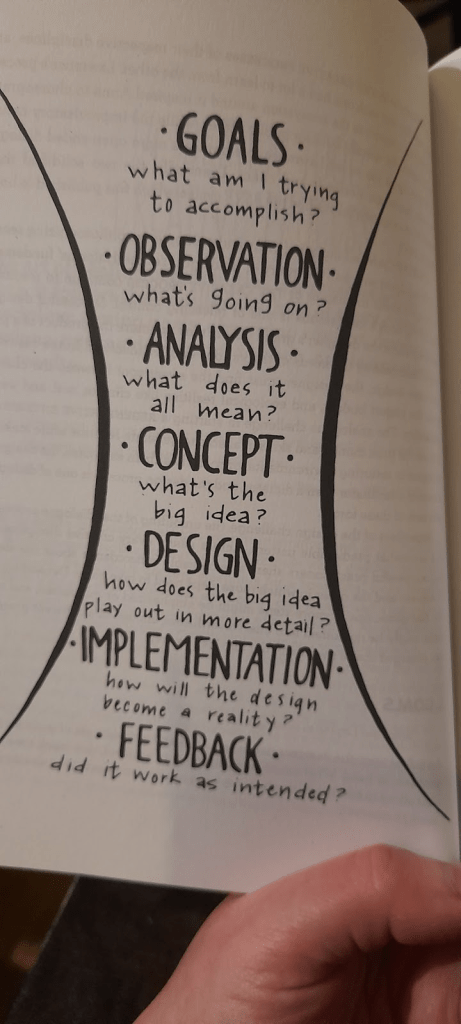 · GOALS ·
what am I trying
to accomplish?
· OBSERVATION ·
what's going on?
· ANALYSIS ·
what does it
all mean?
· CONCEPT ·
what's the
big idea?
· DESIGN ·
how does the big idea
play out in more detail?
· IMPLEMENTATION ·
how will the design
become a reality?
· FEEDBACK ·
did it work as intended?